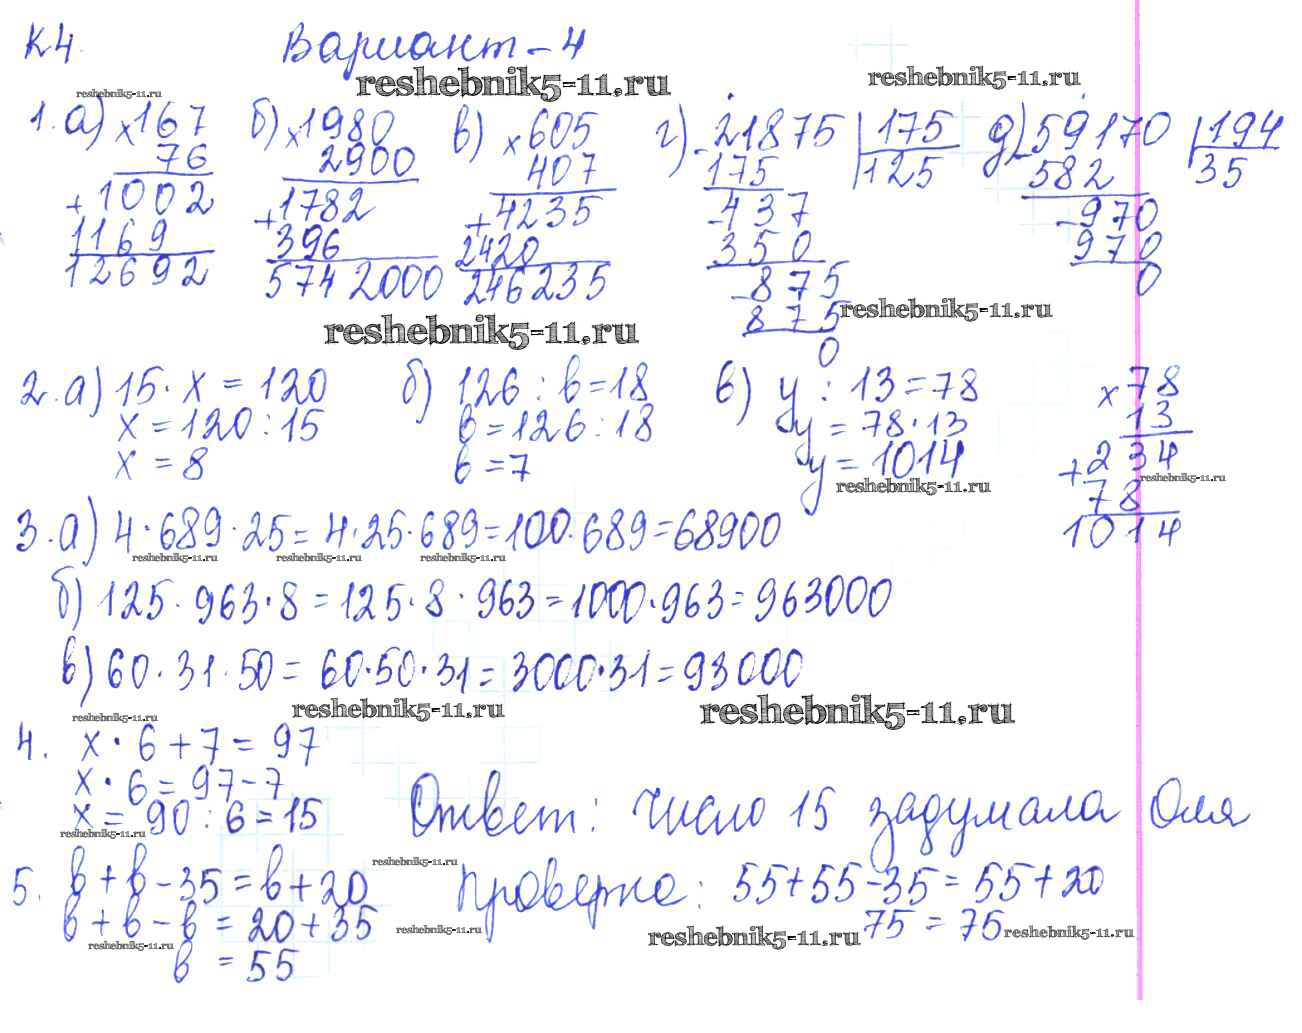 К4. Вариант-4
reshebnik5-11.ru reshebnik5-11.ru
reshebnik5-11.ru
1. а) ×167 б) ×1980 в) ×605 г) -21875 | 175 д) -59170 | 194
76 2900 407 175 125 582 35
+1002 +1782 +4235 -437 -970
1169 396 2420 350 970
12692 5742000 246235 -875 0
875 reshebnik5-11.ru
reshebnik5-11.ru 0
2. а) 15·x = 120 б) 126 : в = 18 в) y : 13 = 78 ×78
x = 120 : 15 в = 126 : 18 y = 78·13 13
x = 8 в = 7 y = 1014 +234
reshebnik5-11.ru reshebnik5-11.ru
78
1014
3. а) 4·689·25 = 4·25·689 = 100·689 = 68900
reshebnik5-11.ru reshebnik5-11.ru reshebnik5-11.ru
б) 125·963·8 = 125·8·963 = 1000·963 = 963000
в) 60·31·50 = 60·50·31 = 3000·31 = 93000
reshebnik5-11.ru reshebnik5-11.ru reshebnik5-11.ru
4. x·6+7 = 97
x·6 = 97-7
x = 90 : 6 = 15 Ответ: число 15 задумала Оля
reshebnik5-11.ru
reshebnik5-11.ru
5. в+в-35 = в+20 Проверка: 55+55-35 = 55+20
в+в-в = 20+35 75 = 75
reshebnik5-11.ru reshebnik5-11.ru reshebnik5-11.ru reshebnik5-11.ru
в = 55